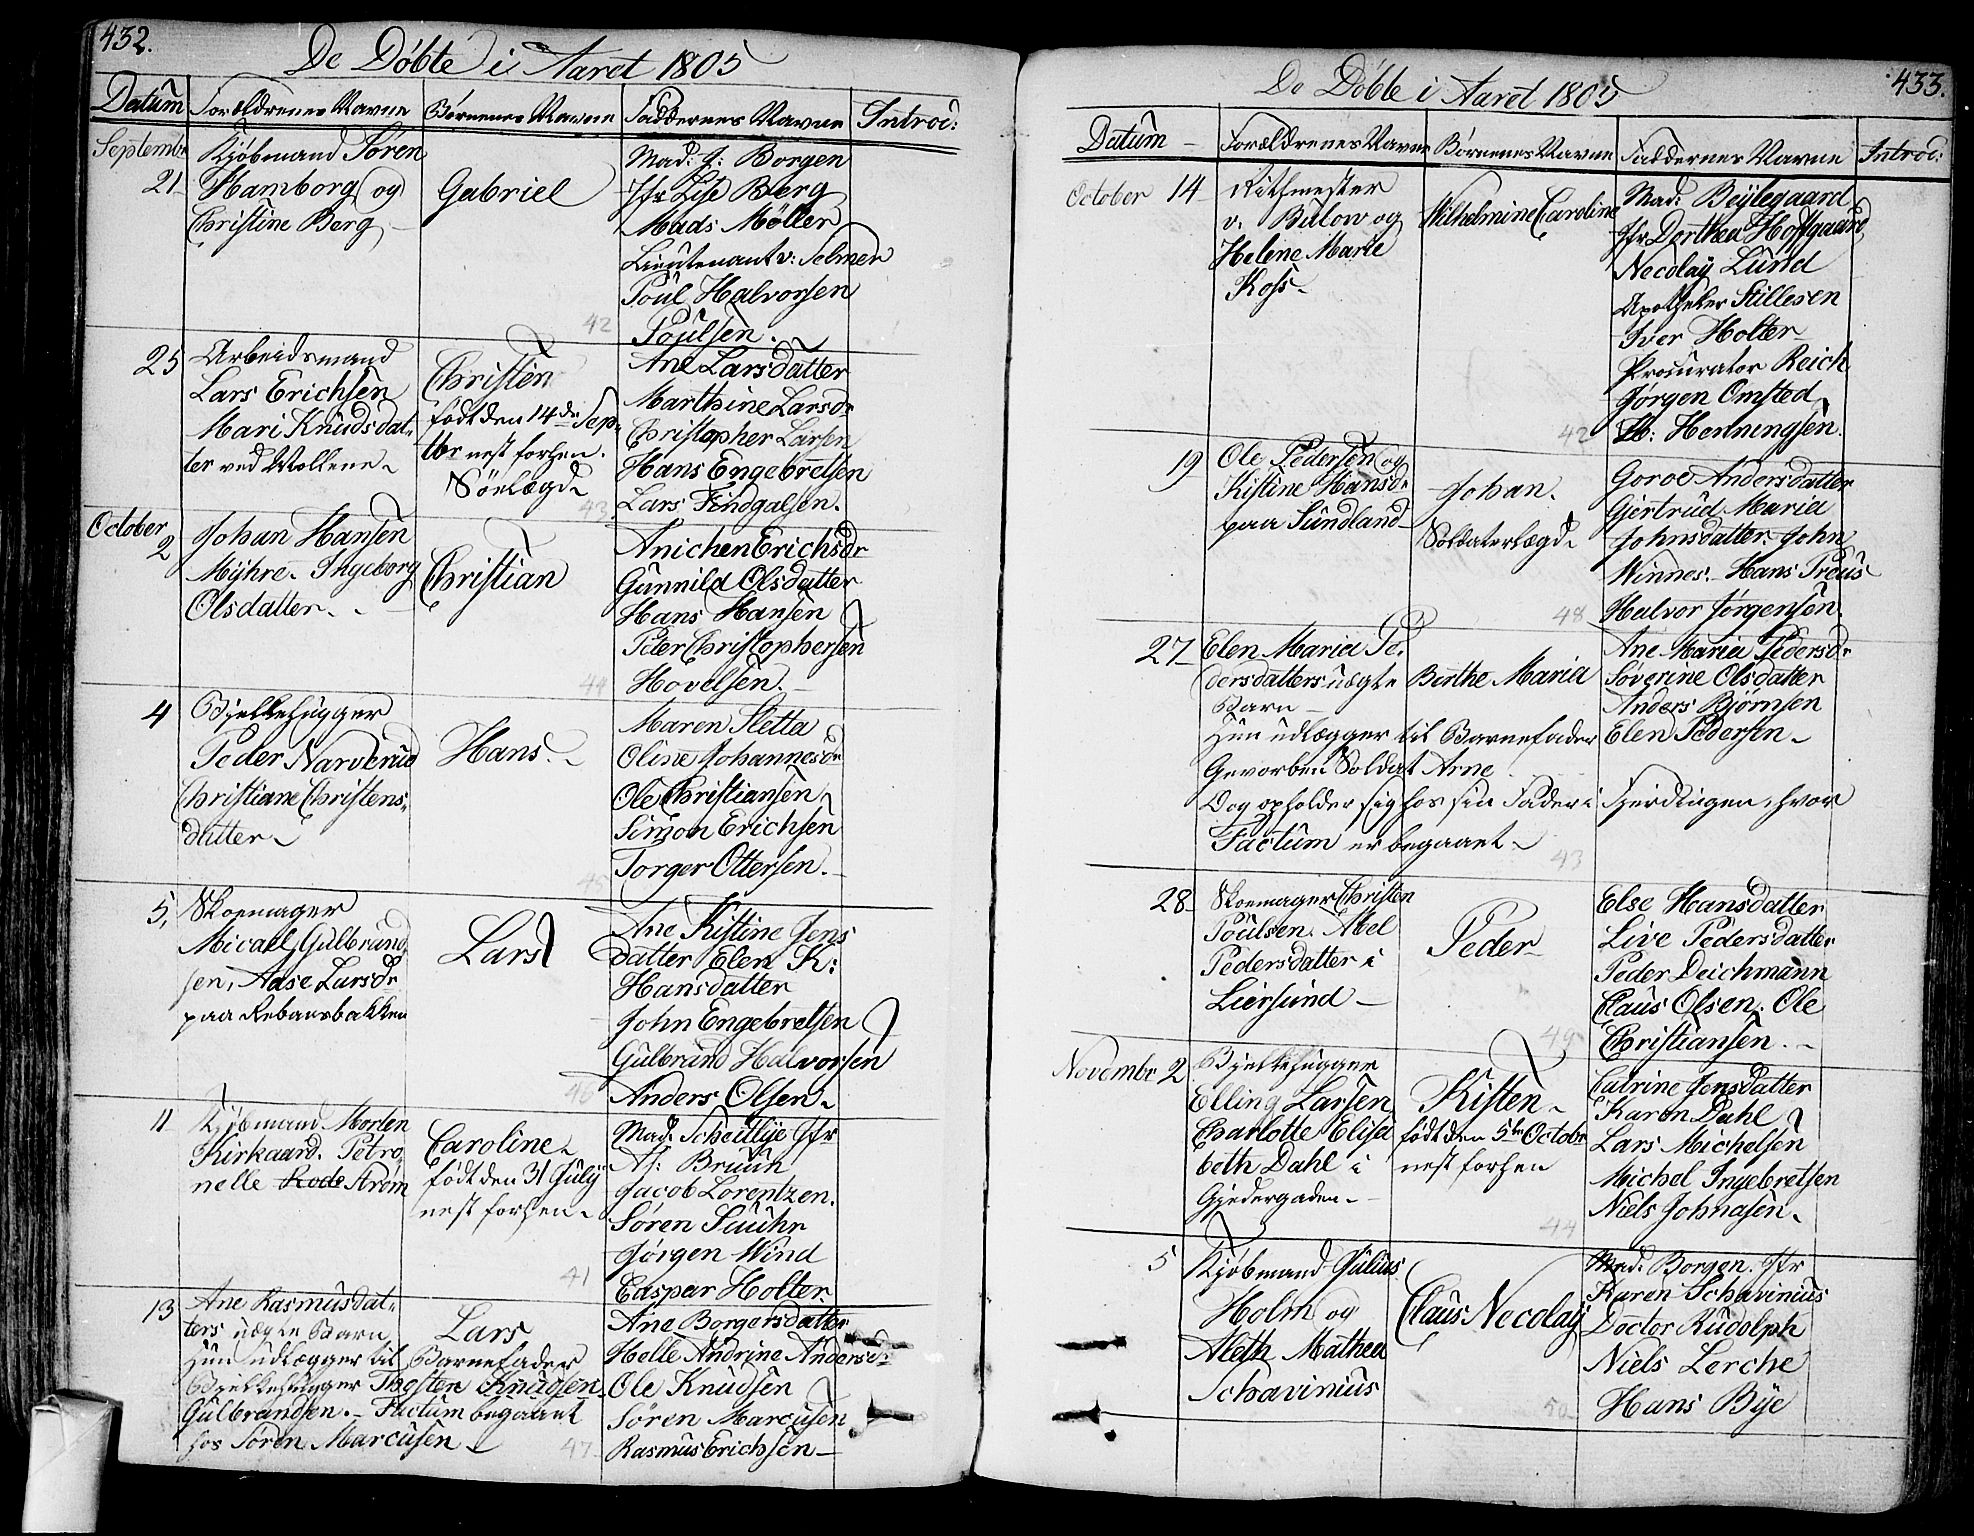 432.
De Döbte i Aaret 1805
Datum
Forældrenes Navne
Börnenes Navne
Faddernes Navne
Introd:
Septembr
21
Kjöbmand Sören
Hamborg og
Christine Berg
Gabriel
Mad: J: Borgen
Jfr Lise Berg
Mads Möller
Lieutenant v: Selmer
Poul Halvorsen
Poulsen.
42
25
Arbeidsmand
Lars Erichsen
Mari Knudsdat-
ter ved Wollene
Christen
født den 14de Sep-
tbr nest forhen.
Söelægd
Ane Larsdatter
Marthine Larsdr
Christopher Larsen
Hans Engebretsen
Lars Findgalsen.
43
October
2
Johan Hansen
Myhre. Ingeborg
Olsdatter.
Christian
Anichen Erichsdr
Gunnild Olsdatter
Hans Hansen
Peter Christophersen
Hovelsen.
44
4
Bjelkehugger
Peder Narverud
Christiane Christens-
datter
Hans.
Maren Sletta
Oline Johannesdr
Ole Christiansen
Simon Erichsen
Torger Ottersen.
45
5.
Skoemager
Micael Gulbrand-
sen, Aase Larsdr
paa Rebansbakken
Lars
Ane Kistine Jens
datter Elen K:
Hansdatter
John Engebretsen
Gulbrand Halvorsen
Anders Olsen
46
11
Kjöbmand Morten
Kirkaard. Petro-
nelle Rode Ström
Caroline
født den 31 Julij
nest forhen
Mad. Scheitlije Jfr
A: Bruun
Jacob Lorentzen.
Sören Sauhr
Jörgen Wind
Caspar Holter.
41
13
Ane Rasmusdat-
ters uægte Barn
Hun udlægger til Barnefader
Bjelkehugger Thosten Knudsen
Gulbrandsen. Factum begaaet
hos Sören Marcusen
Lars
Ane Borgersdatter
Helle Andrine Andersdr
Ole Knudsen
Sören Marcusen
Rasmus Erichsen
47
433.
De Döbte i Aaret 1805
Datum
Forældrenes Navne
Börnenes Navne
Faddernes Navne
Introd:
October 14
Ritmester
v. Bulow og
Helene Marie
Koss
Wilhelmine Caroline
Mad: Beylegaard
Jfr Dorthea Hofgaard
Necolay Lund
Apotheker Stillesen
Iver Holter
Procurator Reich
Jörgen Omsted
H: Henningsen.
42
19
Ole Pedersen og
Kistine Hansdr
paa Sundland
Johan.
Soldaterlægd
Goroe Andersdatter
Giertrud Maria
Johnsdatter. John
Winnes. Hans Preüs
Halvor Jörgensen
48
27
Elen Maria Pe-
dersdatters uægte
Barn
Hun udlægger til Barnefader
Gevorben Soldat Arne
Dog opholder sig hos sin Fader i Fjerdingen, hvor
Factum er begaaet
Birthe Maria
Ane Maria Pedersdr
Söverine Olsdatter
Anders Björnsen
Elen Pedersen
43
28
Skoemager Christen
Poulsen. Abel
Pedersdatter i
Liersund
Peder
Else Hansdatter
Live Pedersdatter
Peder Deichmann
Claus Olsen. Ole
Christiansen.
49
Novembr 2
Bjelkehugger
Elling Larsen
Charlotte Elisa
beth Dahl i
Gjedergaden
Kisten
født den 5te Octobr
nest forhen
Catrine Jensdatter
Karen Dahl
Lars Michelsen
Michel Ingebretsen
Niels Johnasen
44
5
Kjöbmand Julius
Holm og
Aleth Mathea
Schavinius
Claus Necolay
Mad. Borgen. Jfr
Karen Schavinius
Doctor Rudolph
Niels Lerche
Hans Bye
50